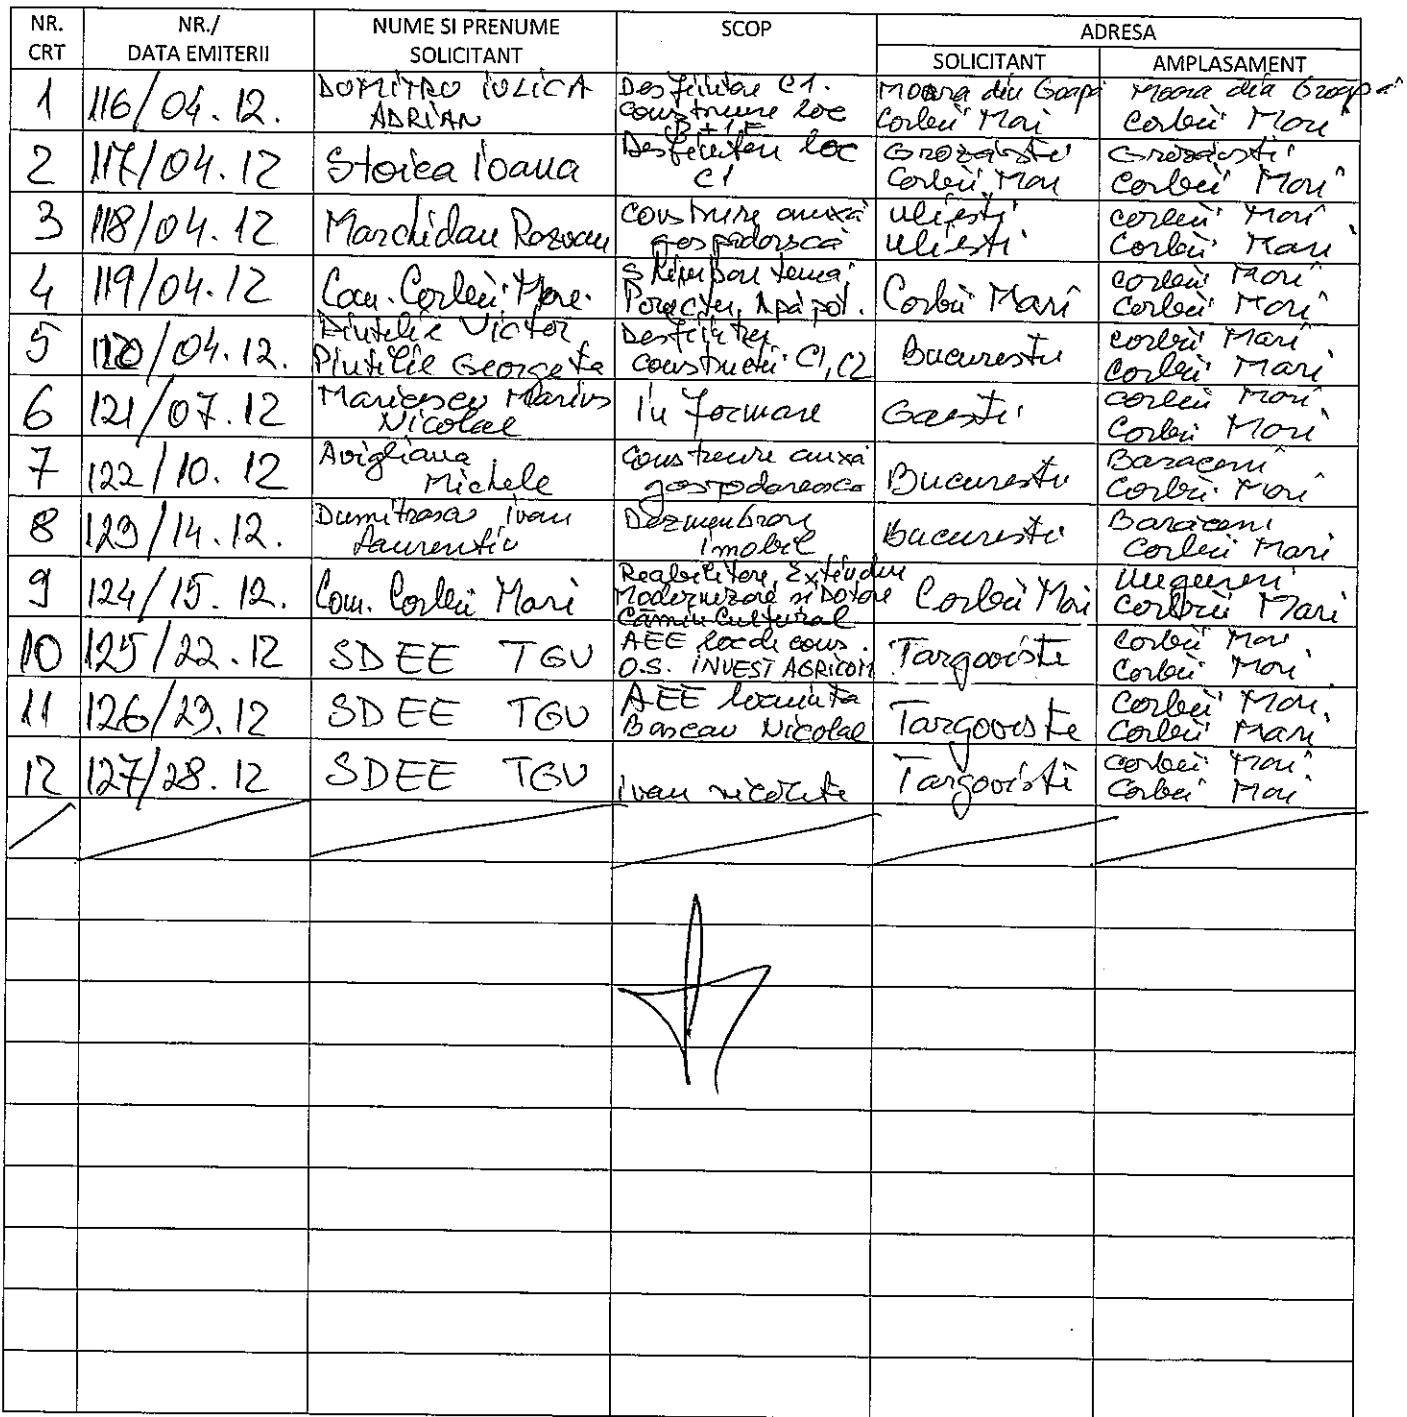 NR. CRT
NR./ DATA EMITERII
NUME SI PRENUME SOLICITANT
SCOP
ADRESA
SOLICITANT
AMPLASAMENT
1
116/04.12.
DUMITRU IULICA
ADRIAN
Desfiintare C1.
Construire loc
P+1E
Moara din Goapa
Corbii Mari
Moara din Groapa
Corbii Mari
2
117/04.12
Stoica Ioana
Desfiintare loc
C1
Grozavesti
Corbii Mari
Grozavesti
Corbii Mari
3
118/04.12
Marchidan Razvan
Construire anexă
gospodorscă
Uliesti
Uliesti
Corbii Mari
Corbii Mari
4
119/04.12
Com. Corbii Mari
Apă pot.
Corbii Mari
Corbii Mari
Corbii Mari
5
120/04.12.
Pintilie Victor
Pintilie Georgeta
Desfiintare
constructii C1, C2
Bucuresti
Corbii Mari
Corbii Mari
6
121/07.12
Maricescu Marius
Nicolae
In formare
Gaesti
Corbii Mari
Corbii Mari
7
122/10.12
Avigliana
Michele
Construire anexă
gospodareasca
Bucuresti
Baraceni
Corbii Mari
8
123/14.12.
Dumitrascu Ivan
Laurentiu
Dezmembrare
imobil
Bucuresti
Baraceni
Corbii Mari
9
124/15.12.
Com. Corbii Mari
Reabilitare, Extindere
Modernizare si Dotare
Cămin Cultural
Corbii Mari
Ungureni
Corbii Mari
10
125/22.12
SDEE TGV
AEE loc de cons.
O.S. INVEST AGRICOM
Targoviste
Corbii Mari
Corbii Mari
11
126/23.12
SDEE TGV
AEE locuinta
Bascau Nicolae
Targoviste
Corbii Mari
Corbii Mari
12
127/28.12
SDEE TGV
Ivan Nicolita
Targoviste
Corbii Mari
Corbii Mari